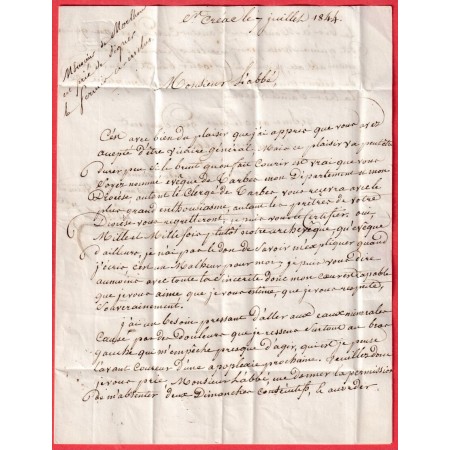 St Créac le 7 juillet 1844
Mémoire de
est prié de signer
le
Monsieur L'abbé,
C'est avec bien du plaisir que j'ai appres que vous avez
accepté d'être vicaire général. Mais ce plaisir va peut être
durer peu, si le brut qu'on fait courir est vrai que vous
soyez nommé évêque de Tarbes mon Département et mon
Diocèse, autant le Clergé de Tarbes vous recevra avec le
plus grand enthousiasme, autant les prêtres de votre
Diocèse vous regretteront, je puis vous le certifier, ou
Mille et Mille fois plutôt notre archevêque, qu'évêque
d'ailleurs, je n'ai pas le don de savoir m'expliquer quand
j'écris c'est un Malheur pour moi, je puis vous dire
aumoins avec toute la sincérité dont mon cœur est capable
que je vous aime que je vous estime, que je vous respecte,
souverainement.
j'ai un besoin pressant d'aller aux eaux minerales
à cause par des Douleurs que je ressens surtout au bras
gauche qui m'empêche presque d'agir, qui est je puis
l'avant Coureur d'une apoplexie prochaine. Veuillez donc
je vous prie Monsieur L'abbé, me donner la permission
de m'absenter deux Dimanches consécutifs, & accorder